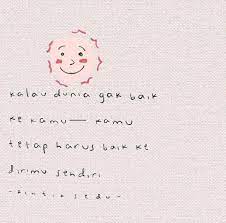 kalau dunia gak baik
ke kamu— kamu
tetap harus baik ke
dirimu sendiri
-rintik sedu-